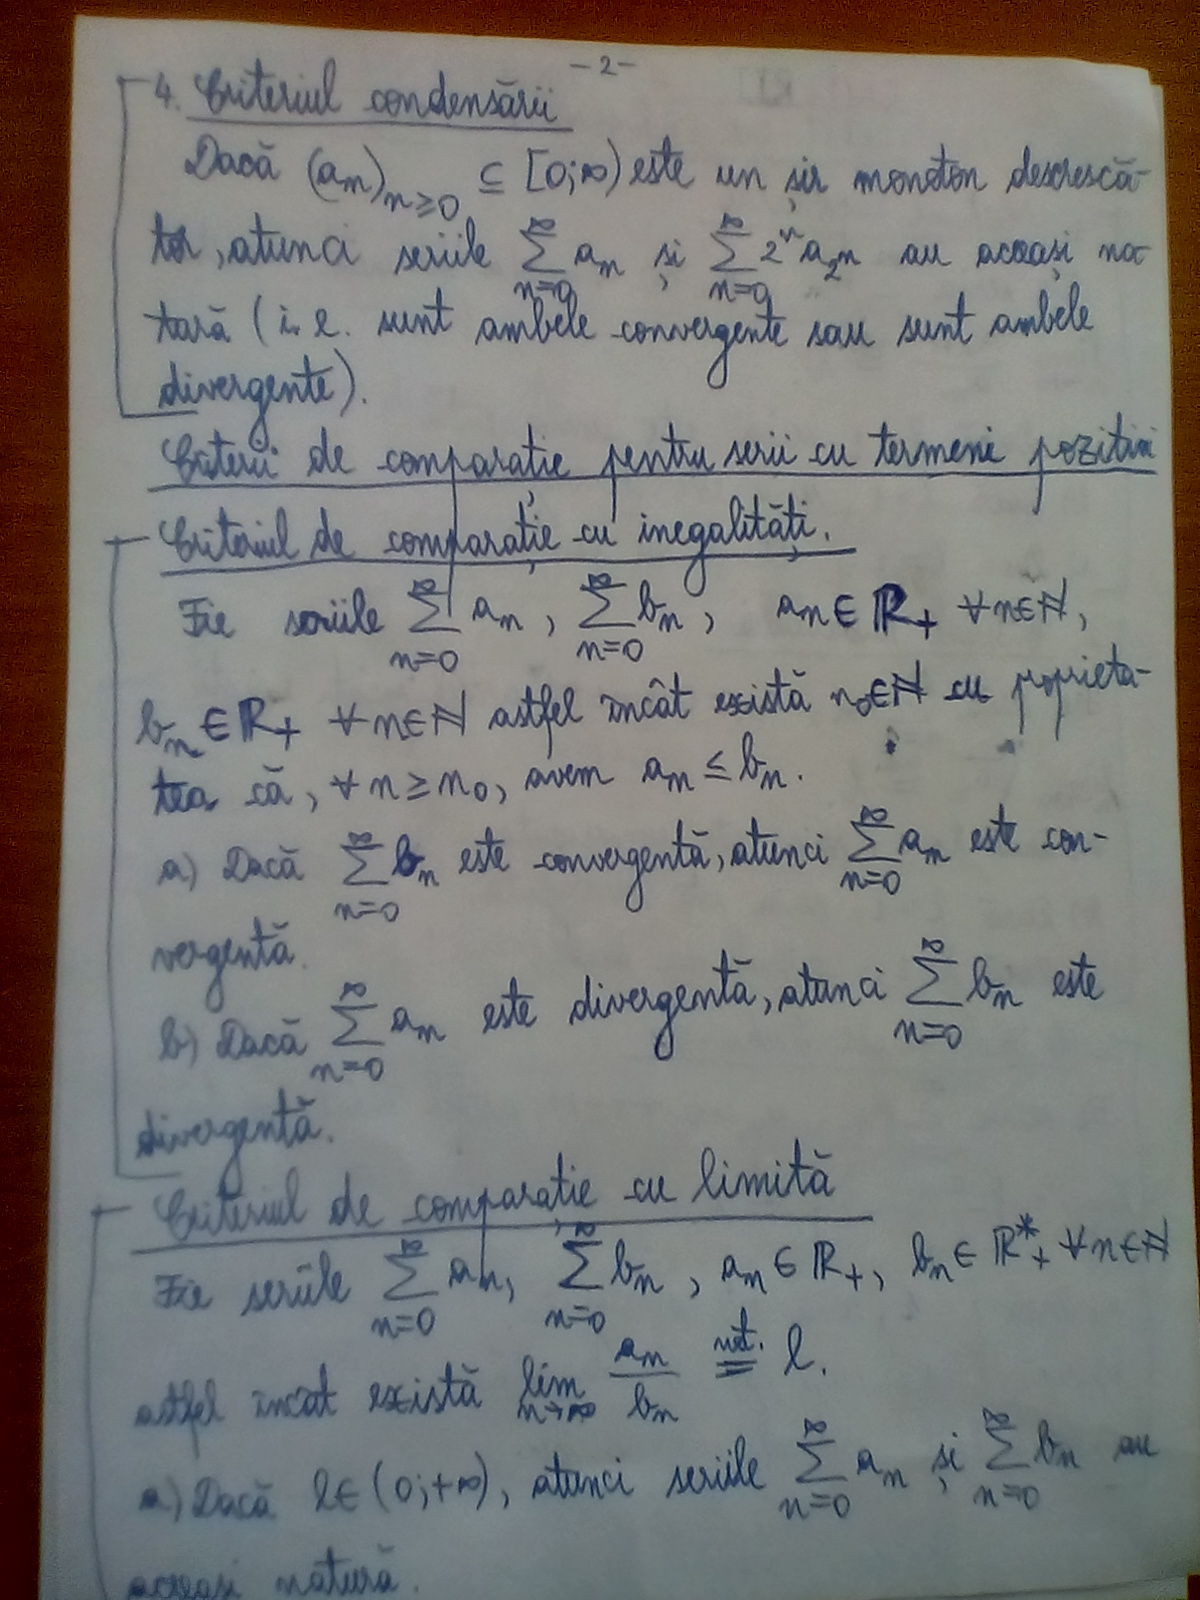 -2-
4. Criteriul condensării
Dacă (aₙ)ₙ≥₀ ⊆ [0;∞) este un șir monoton descrescă-
tor, atunci seriile ∑_{n=0}^{∞} aₙ și ∑_{n=0}^{∞} 2ⁿa_{2ⁿ} au aceeași na-
tură (i.e. sunt ambele convergente sau sunt ambele
divergente).
Criterii de comparație pentru serii cu termeni pozitivi
Criteriul de comparație cu inegalități.
Fie seriile ∑_{n=0}^{∞} aₙ, ∑_{n=0}^{∞} bₙ, aₙ∈ℝ₊ ∀n∈ℕ,
bₙ∈ℝ₊ ∀n∈ℕ astfel încât există n₀∈ℕ cu proprieta-
tea că, ∀n≥n₀, avem aₙ≤bₙ.
a) Dacă ∑_{n=0}^{∞} bₙ este convergentă, atunci ∑_{n=0}^{∞} aₙ este con-
vergentă.
b) Dacă ∑_{n=0}^{∞} aₙ este divergentă, atunci ∑_{n=0}^{∞} bₙ este
divergentă.
Criteriul de comparație cu limită
Fie seriile ∑_{n=0}^{∞} aₙ, ∑_{n=0}^{∞} bₙ, aₙ∈ℝ₊, bₙ∈ℝ*₊ ∀n∈ℕ
astfel încât există lim_{n→∞} aₙ/bₙ =^{not.} l.
a) Dacă l∈(0;+∞), atunci seriile ∑_{n=0}^{∞} aₙ și ∑_{n=0}^{∞} bₙ au
aceeași natură.